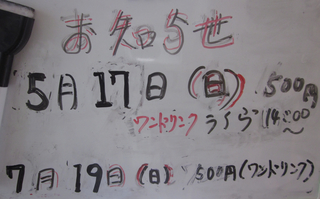 お知らせ
5月17日(日) 500円
ワンドリンク うくらブ 14:00〜
7月19日(日) 500円(ワンドリンク)